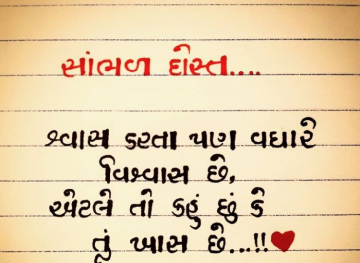 સાંભળ દોસ્ત....
શ્વાસ કરતા પણ વધારે
વિશ્વાસ છે,
એટલે તો કહું છું કે
તું ખાસ છે...!!❤